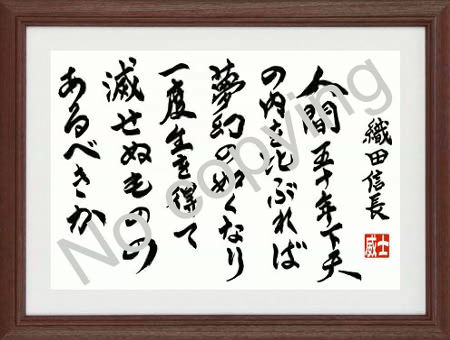 織田信長
威士
人間五十年下天
の内を比ぶれば
夢幻の如くなり
一度生を得て
滅せぬものの
あるべきか
No copying